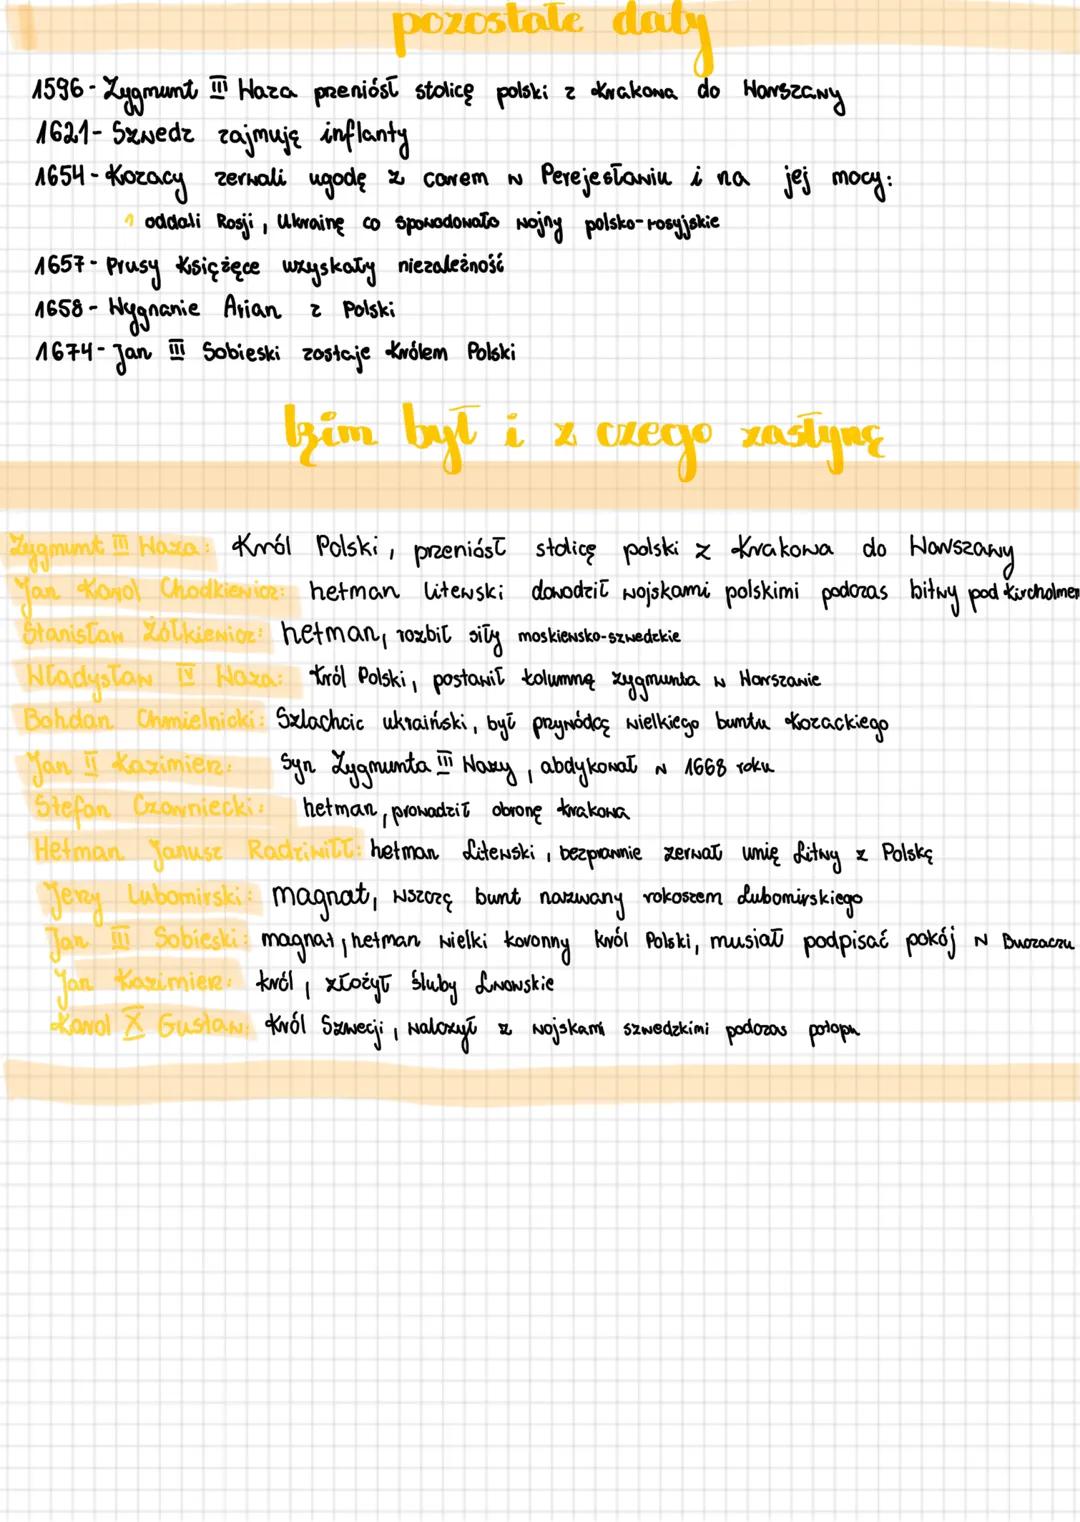 pozostałe daty
1596 - Zygmunt III Waza przeniósł stolicę polski z Krakowa do Warszawy
1621 - Szwedz zajmują inflanty
1654 - Kozacy zerwali ugodę z carem w Perejesławiu i na jej mocy:
1 oddali Rosji, Ukrainę co spowodowało wojny polsko-rosyjskie
1657 - Prusy Książęce wzyskały niezależność
1658 - Wygnanie Arian z Polski
1674 - Jan III Sobieski zostaje królem Polski
kim był i z czego zasłynę
Zygmunt III Waza: Król Polski, przeniósł stolicę polski z Krakowa do Warszawy
Jan Karol Chodkiewicz: hetman litewski dowodził wojskami polskimi podczas bitwy pod Kircholmem
Stanisław Żółkiewicz: hetman, rozbił siły moskiewsko-szwedzkie
Władysław IV Waza: król Polski, postawił kolumnę zygmunta w Warszawie
Bohdan Chmielnicki: Szlachcic ukraiński, był przywódcą wielkiego buntu kozackiego
Jan II Kazimierz: Syn Zygmunta III Wazy, abdykował w 1668 roku
Stefan Czarniecki: hetman, prowadził obronę krakowa
Hetman Janusz Radziwiłł: hetman Litewski, bezprawnie zerwał unię Litwy z Polską
Jerzy Lubomirski: magnat, wszczą bunt nazwany rokoszem Lubomirskiego
Jan III Sobieski: magnat, hetman wielki koronny król Polski, musiał podpisać pokój w Buczaczu
Jan Kazimierz: król, złożył śluby Lwowskie
Karol X Gustaw: Król Szwecji, walczył z wojskami szwedzkimi podczas potopu